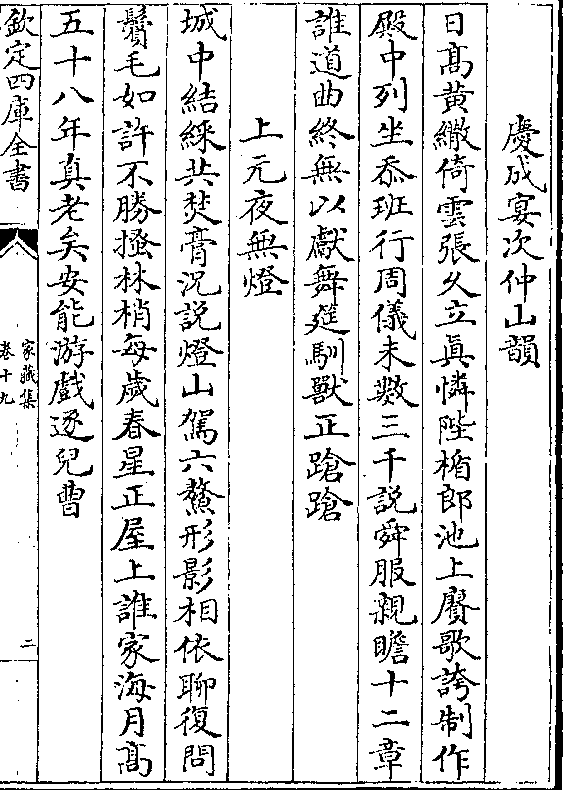 慶成宴次仲山韻
日髙黄繖倚雲張久立真憐陛楯郎池上賡歌誇制作
殿中列坐忝班行周儀未數三千説舜服親瞻十二章
誰道曲終無以獻舞筵馴獸正蹌蹌
上元夜無燈
城中結綵共焚膏況説燈山駕六鰲形影相依聊復問
鬢毛如許不勝搔林梢每歲春星正屋上誰家海月髙
五十八年真老矣安能游戲逐兒曹
欽定四庫全書
家藏集
卷十九
二